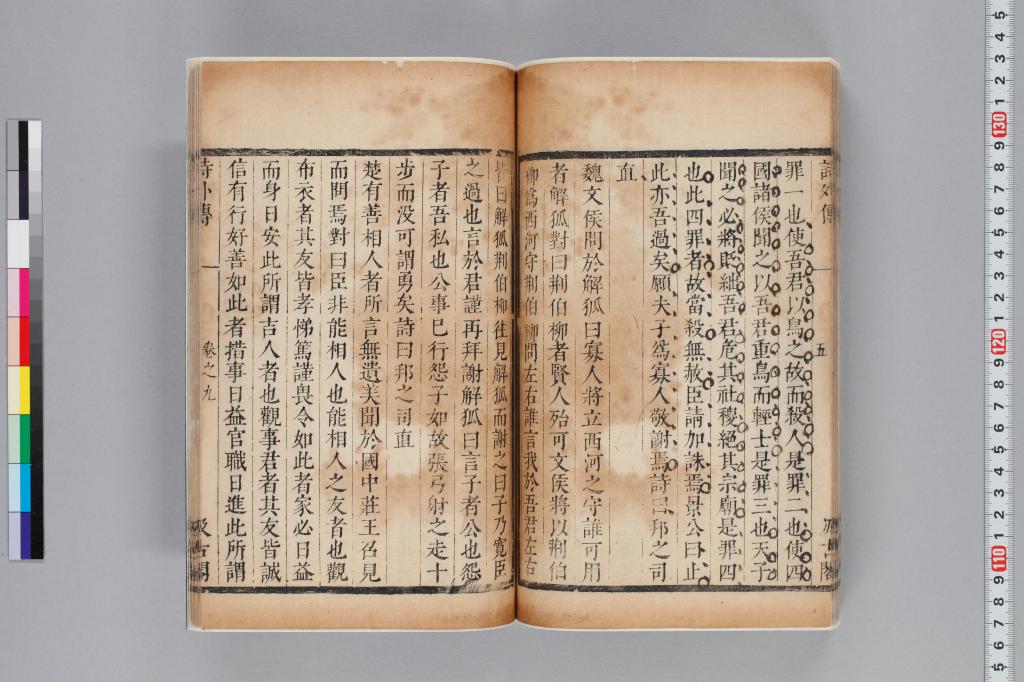 詩外傳
五
罪一也使吾君以鳥之故而殺人是罪二也使四
國諸侯聞之以吾君重鳥而輕士是罪三也天子
聞之必將貶絀吾君危其社稷絕其宗廟是罪四
也此四罪者故當殺無赦臣請加誅焉景公曰止
此亦吾過矣願夫子爲寡人敬謝焉詩曰邦之司
直
魏文侯問於解狐曰寡人將立西河之守誰可用
者解狐對曰荆伯柳者賢人殆可文侯將以荆伯
柳爲西河守荆伯柳問左右誰言我於吾君左右
皆曰解狐荆伯柳往見解狐而謝之曰子乃寬臣
之過也言於君謹再拜謝解狐曰言子者公也怨
子者吾私也公事已行怨子如故張弓射之走十
步而没可謂勇矣詩曰邦之司直
楚有善相人者所言無遺美聞於國中莊王召見
而問焉對曰臣非能相人也能相人之友者也觀
布衣者其友皆孝悌篤謹畏令如此者家必日益
而身日安此所謂吉人者也觀事君者其友皆誠
信有行好善如此者措事日益官職日進此所謂
詩外傳
卷之九
汲古閣